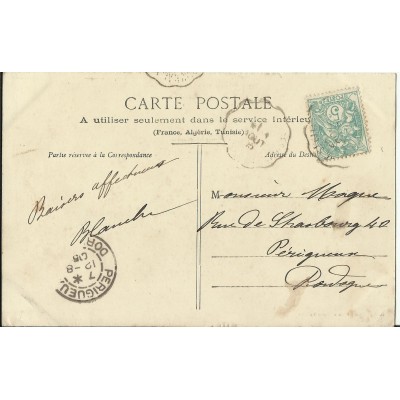 CARTE POSTALE
A utiliser seulement dans le service intérieu
(France, Algérie, Tunisie)
Partie réservée à la Correspondance
Adresse du Des
Baisers affectueux
Blanche
Monsieur
Rue de Strasbourg 40
Périgueux
Dordogne
PERIGUEU
DOR
7 *
12-8
05